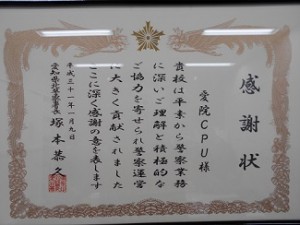 感謝状
愛院CPU様
貴校は平素から警察業務
に深いご理解と積極的な
ご協力を寄せられ警察運営
に大きく貢献されました
ここに深く感謝の意を表します
平成三十一年一月九日
愛知県 警察署長 塚本恭久